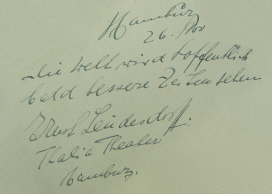 Hamburg
26. Nov
Die Welt wird hoffentlich
bald bessere Zeiten sehen
Leudesdorff.
Thalia Theater
Hamburg.